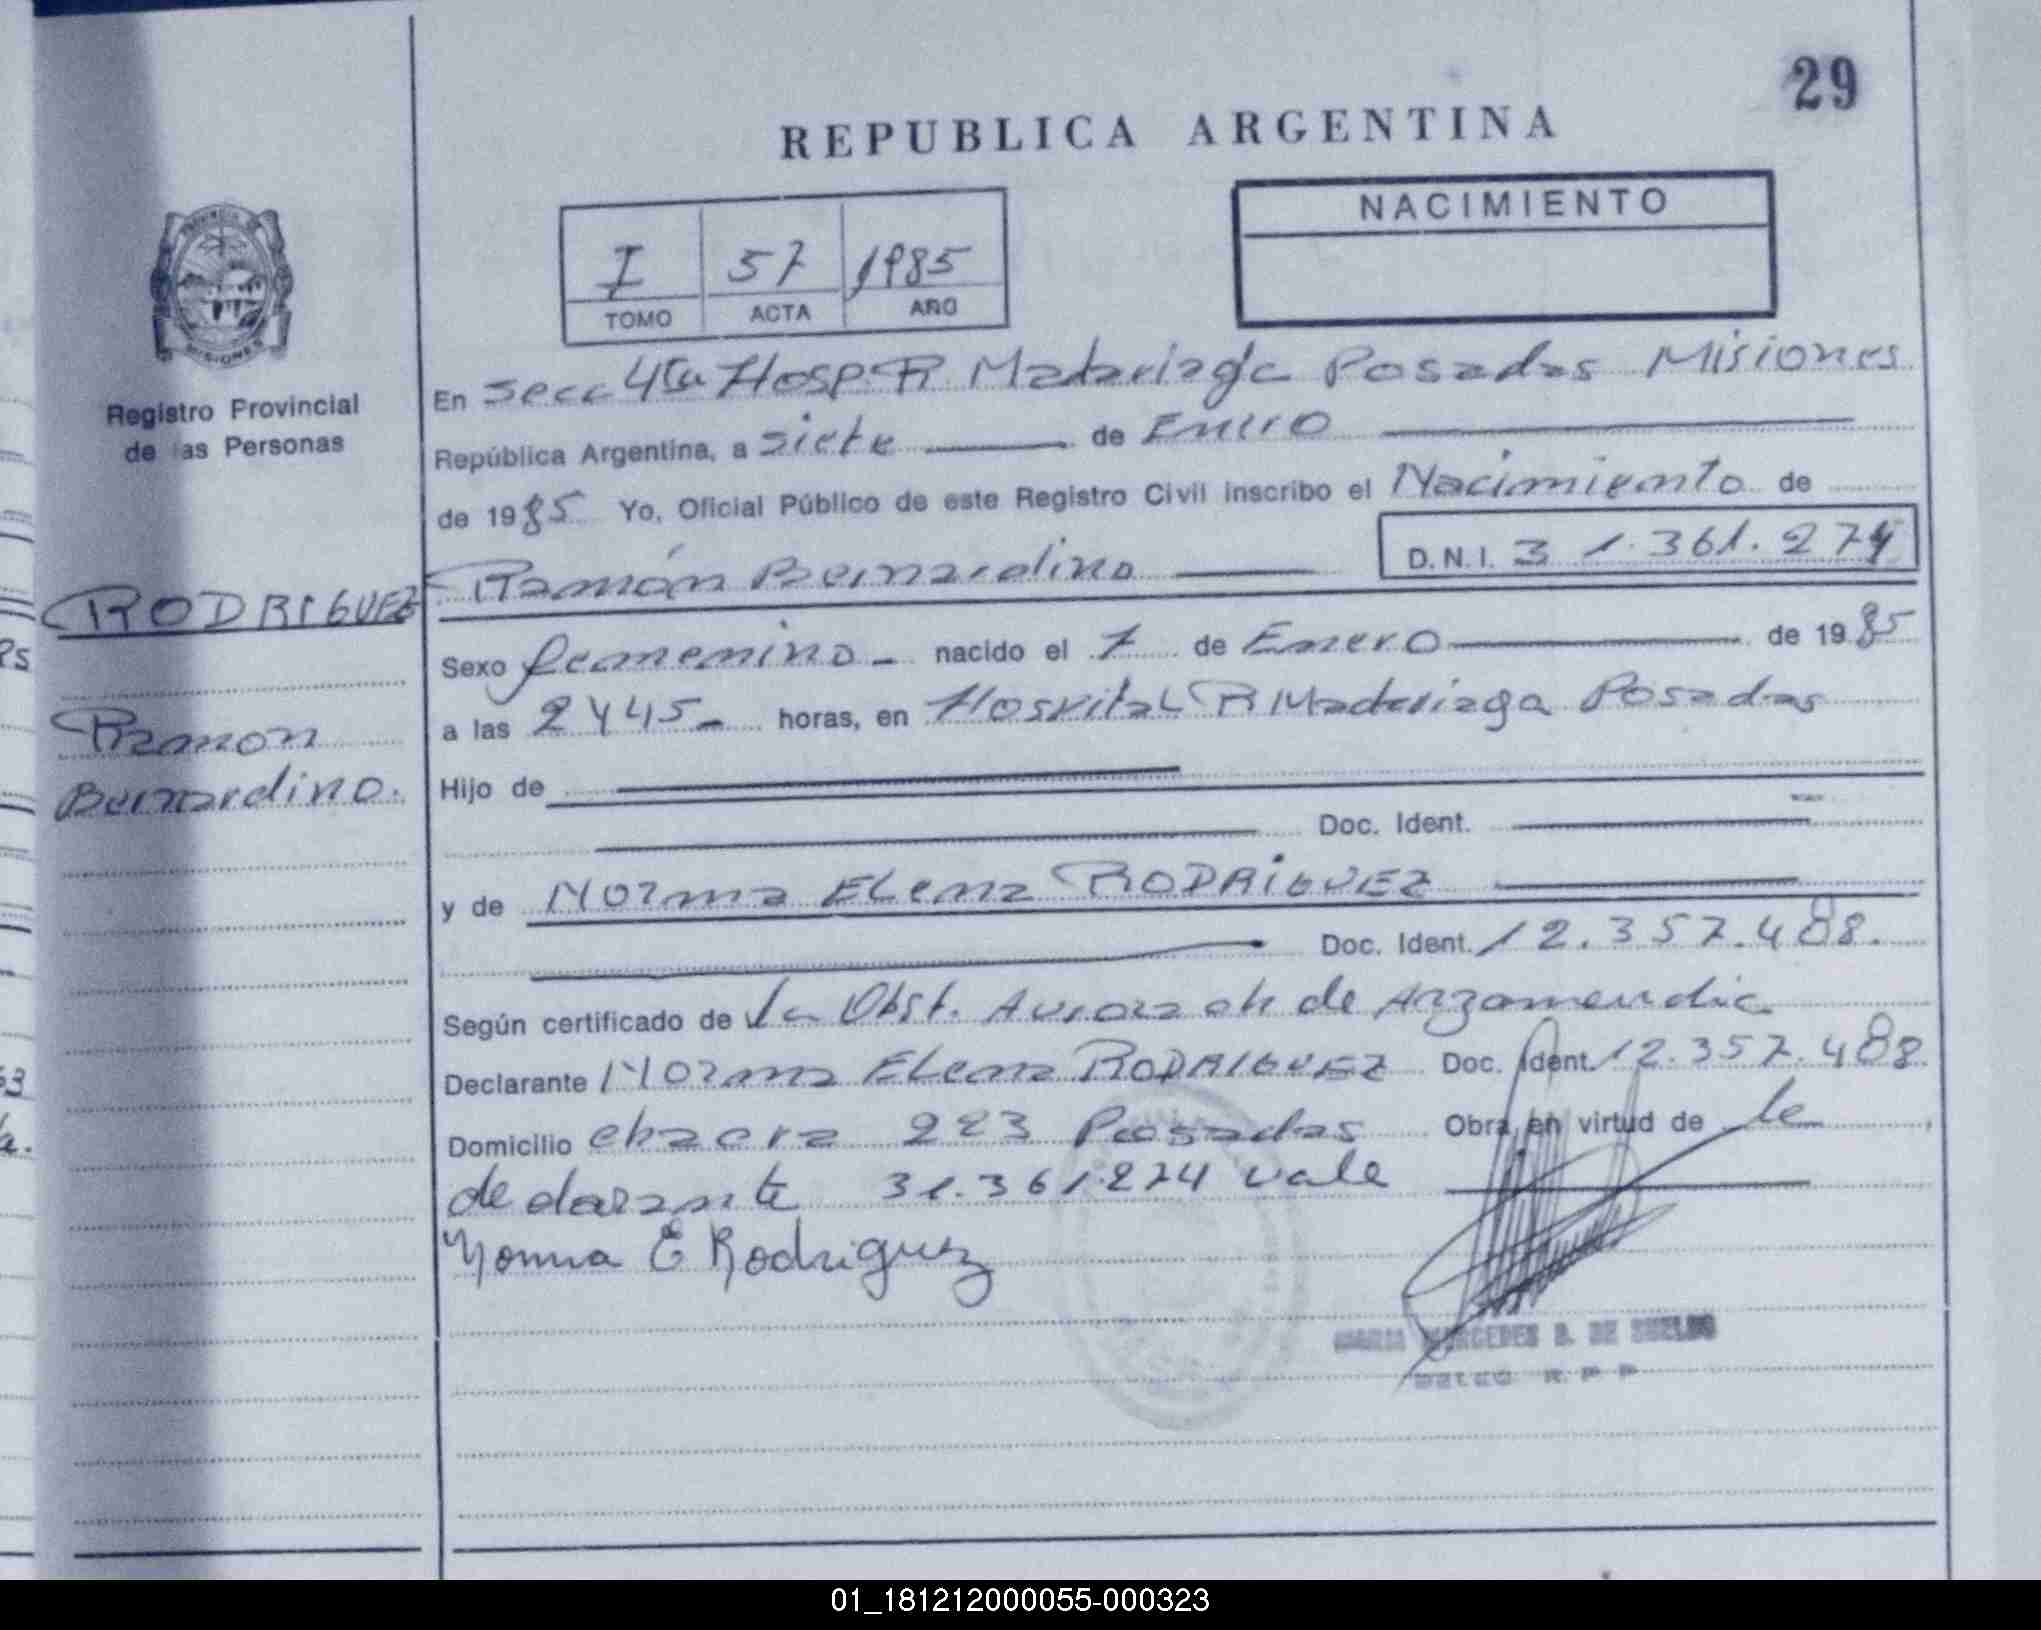 29
REPUBLICA ARGENTINA
I 57 1985
TOMO ACTA AÑO
NACIMIENTO
PROVINCIA DE
MISIONES
Registro Provincial
de las Personas
En Secc 4ta Hosp. R Madariaga Posadas Misiones
República Argentina, a siete de Enero
de 1985 Yo, Oficial Público de este Registro Civil inscribo el Nacimiento de
Ramón Bernardino D.N.I. 31.361.274
RODRIGUEZ
Ramon
Bernardino.
Sexo femenino - nacido el 7 de Enero de 1985
a las 2445 - horas, en Hospital R Madariaga Posadas
Hijo de
Doc. Ident.
y de Norma Elena RODRIGUEZ
Doc. Ident. 12.357.488.
Según certificado de la Obst. Aurora de Arzamendia
Declarante Norma Elena RODRIGUEZ Doc. Ident. 12.357.488
Domicilio chacra 223 Posadas Obra en virtud de la
declarante 31.361.274 vale
Norma E Rodriguez
MARIA MERCEDES B. DE SUELDO
R.P.P
01_181212000055-000323